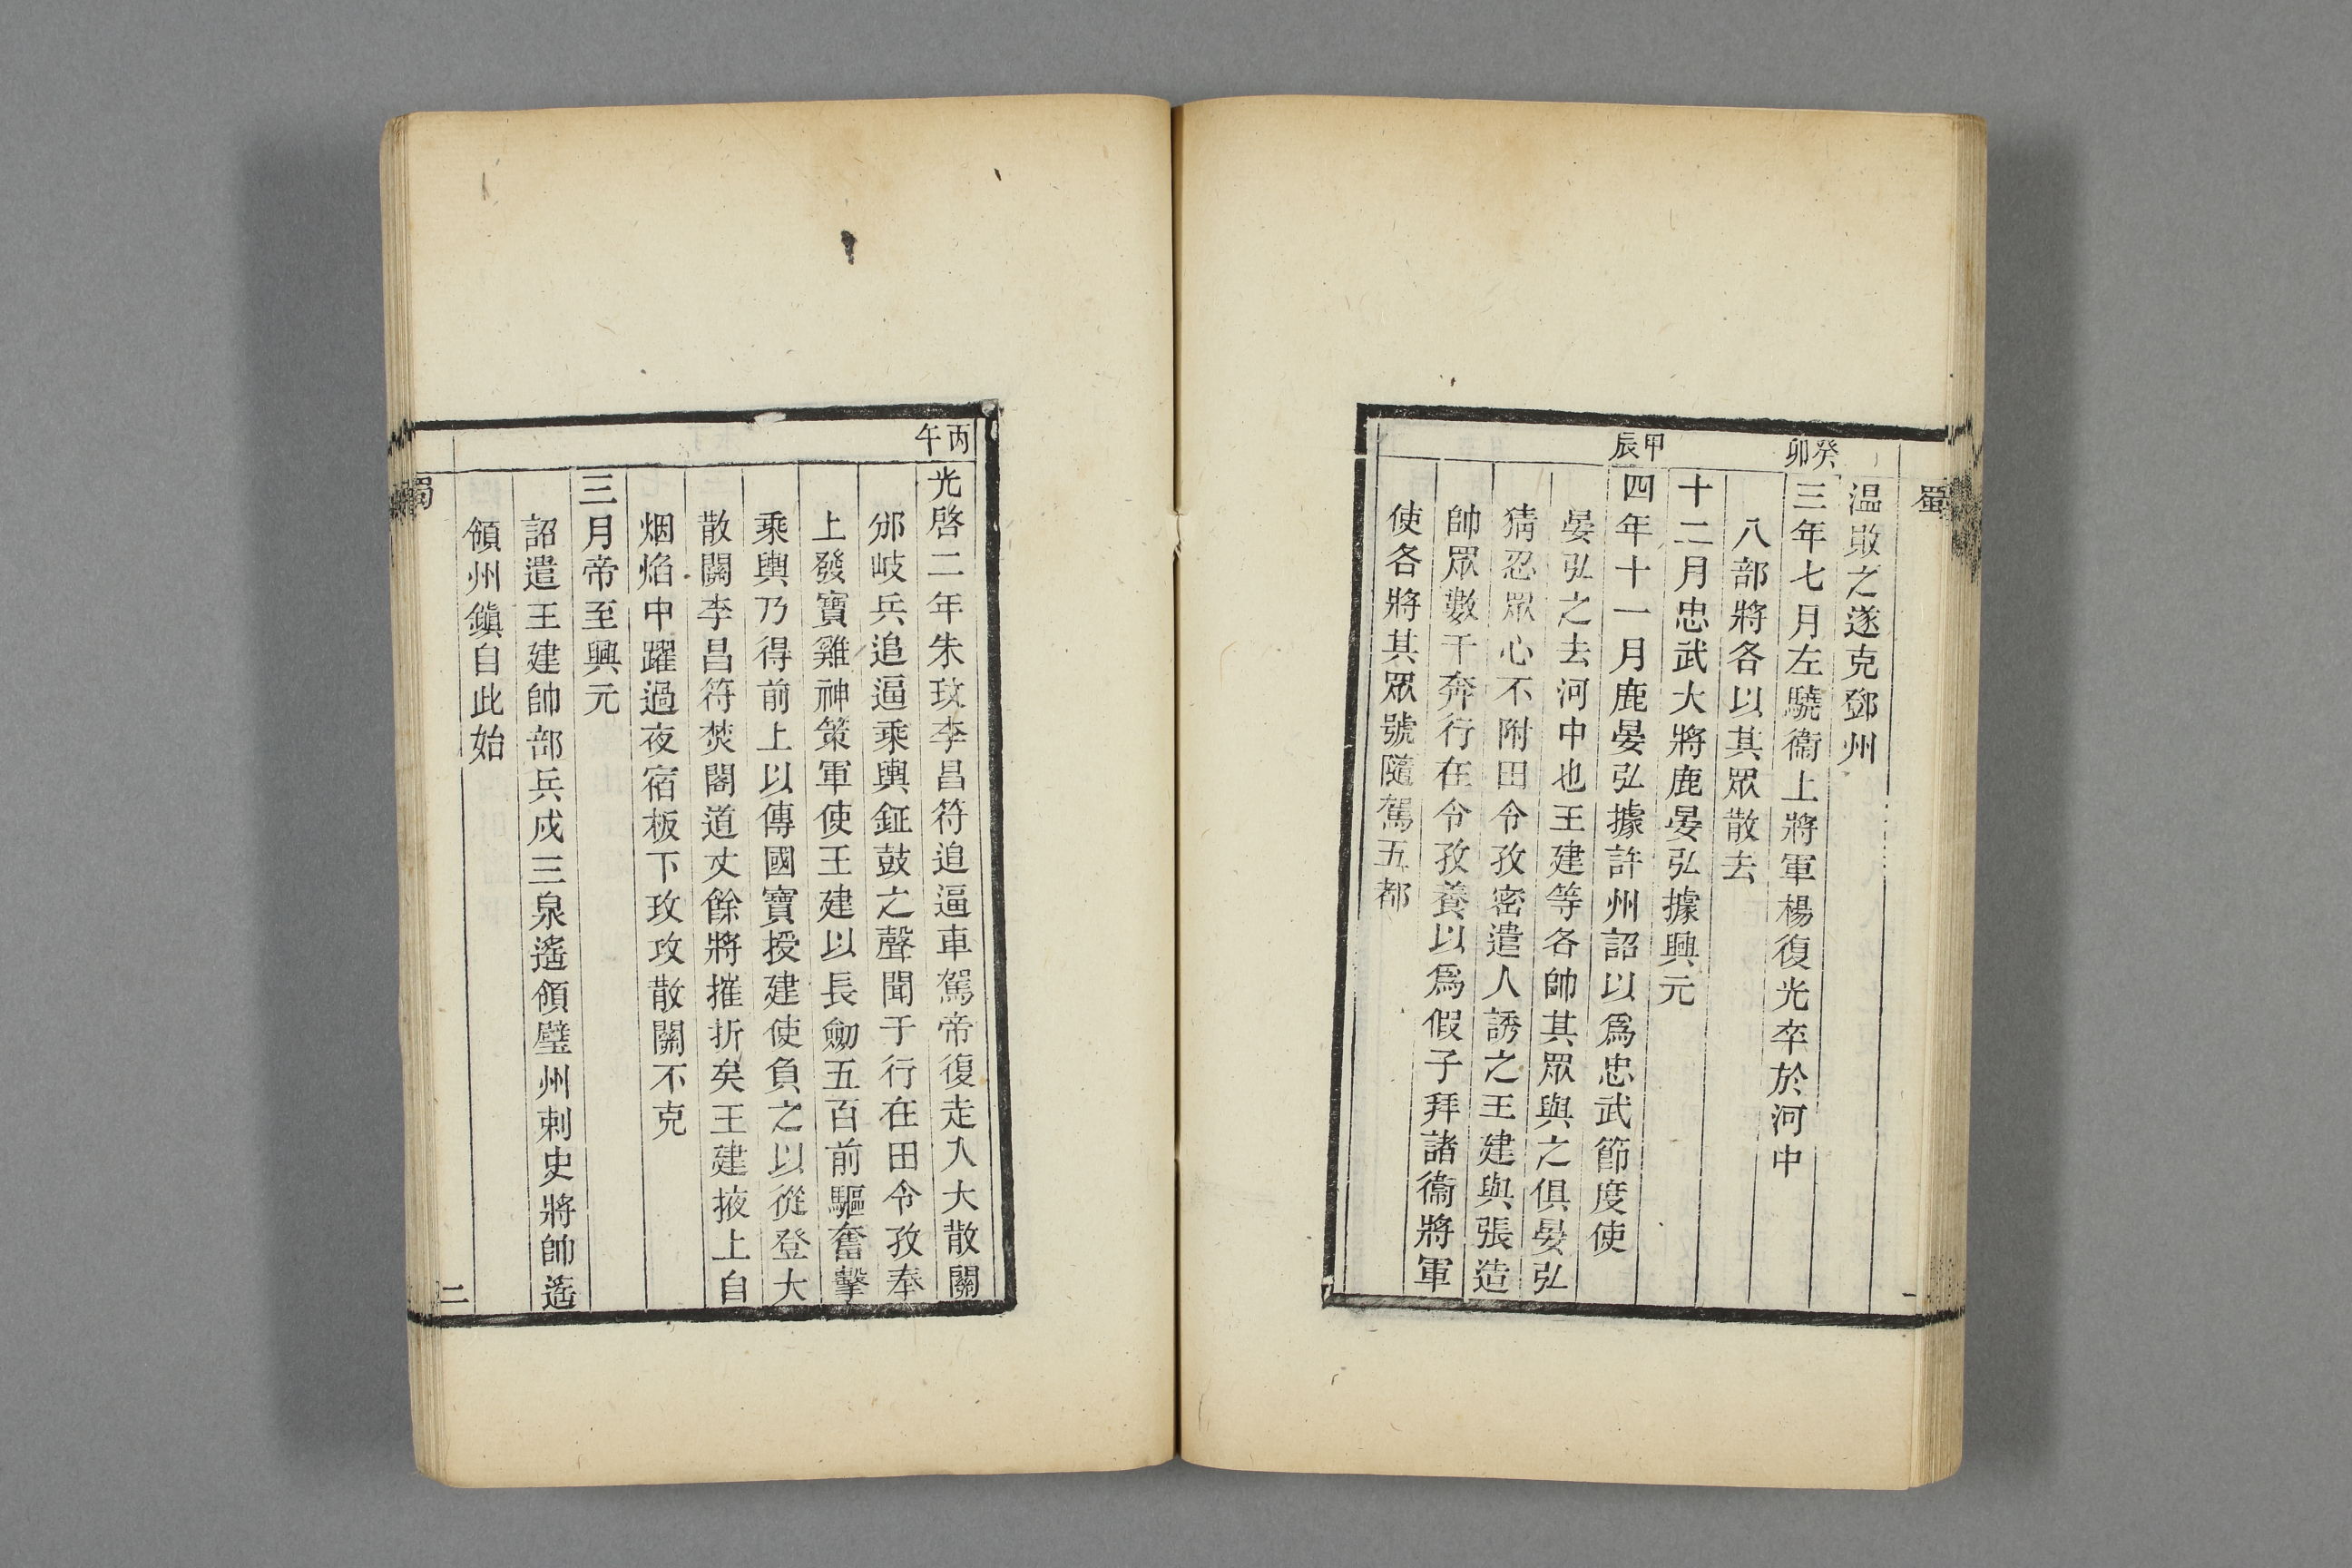 蜀
温敗之遂克鄧州
癸卯
三年七月左驍衞上將軍楊復光卒於河中
八部將各以其眾散去
十二月忠武大將鹿晏弘據興元
甲辰
四年十一月鹿晏弘據許州詔以爲忠武節度使
晏弘之去河中也王建等各帥其眾與之俱晏弘
猜忍眾心不附田令孜密遣人誘之王建與張造
帥眾數千奔行在令孜養以爲假子拜諸衞將軍
使各將其眾號隨駕五都
一
丙午
光啓二年朱玫李昌符追逼車駕帝復走入大散關
邠岐兵追逼乘輿鉦鼓之聲聞于行在田令孜奉
上發寶雞神策軍使王建以長劒五百前驅奮擊
乘輿乃得前上以傳國寶授建使負之以從登大
散關李昌符焚閣道丈餘將摧折矣王建掖上自
烟焰中躍過夜宿板下玫攻散關不克
三月帝至興元
詔遣王建帥部兵戍三泉遙領壁州刺史將帥遙
領州鎭自此始
蜀
二